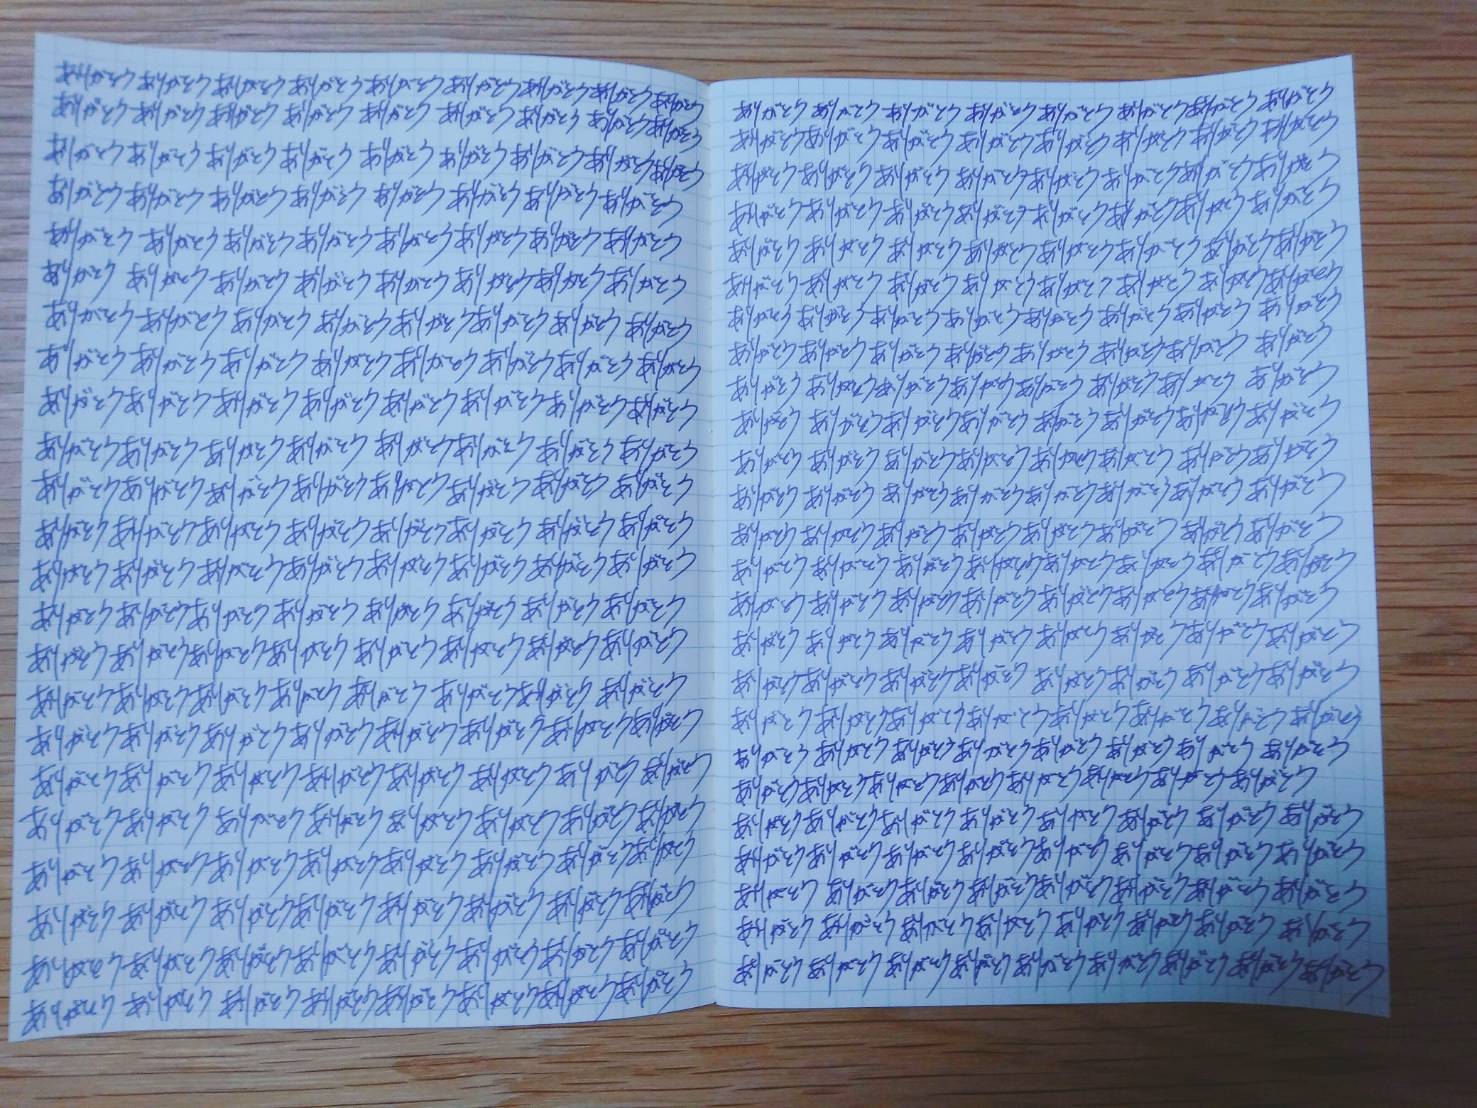 ありがとうありがとうありがとうありがとうありがとうありがとうありがとうありがとうありがとう
ありがとうありがとうありがとうありがとうありがとうありがとうありがとうありがとうありがとう
ありがとうありがとうありがとうありがとうありがとうありがとうありがとうありがとうありがとう
ありがとうありがとうありがとうありがとうありがとうありがとうありがとうありがとう
ありがとうありがとうありがとうありがとうありがとうありがとうありがとうありがとう
ありがとうありがとうありがとうありがとうありがとうありがとうありがとうありがとう
ありがとうありがとうありがとうありがとうありがとうありがとうありがとうありがとう
ありがとうありがとうありがとうありがとうありがとうありがとうありがとうありがとう
ありがとうありがとうありがとうありがとうありがとうありがとうありがとうありがとう
ありがとうありがとうありがとうありがとうありがとうありがとうありがとうありがとう
ありがとうありがとうありがとうありがとうありがとうありがとうありがとうありがとう
ありがとうありがとうありがとうありがとうありがとうありがとうありがとうありがとう
ありがとうありがとうありがとうありがとうありがとうありがとうありがとうありがとう
ありがとうありがとうありがとうありがとうありがとうありがとうありがとうありがとう
ありがとうありがとうありがとうありがとうありがとうありがとうありがとうありがとう
ありがとうありがとうありがとうありがとうありがとうありがとうありがとうありがとう
ありがとうありがとうありがとうありがとうありがとうありがとうありがとうありがとう
ありがとうありがとうありがとうありがとうありがとうありがとうありがとうありがとう
ありがとうありがとうありがとうありがとうありがとうありがとうありがとうありがとう
ありがとうありがとうありがとうありがとうありがとうありがとうありがとうありがとう
ありがとうありがとうありがとうありがとうありがとうありがとうありがとうありがとう
ありがとうありがとうありがとうありがとうありがとうありがとうありがとうありがとう
ありがとうありがとうありがとうありがとうありがとうありがとうありがとうありがとう
ありがとうありがとうありがとうありがとうありがとうありがとうありがとうありがとう
ありがとうありがとうありがとうありがとうありがとうありがとうありがとうありがとう
ありがとうありがとうありがとうありがとうありがとうありがとうありがとうありがとう
ありがとうありがとうありがとうありがとうありがとうありがとうありがとうありがとう
ありがとうありがとうありがとうありがとうありがとうありがとうありがとうありがとう
ありがとうありがとうありがとうありがとうありがとうありがとうありがとうありがとう
ありがとうありがとうありがとうありがとうありがとうありがとうありがとうありがとう
ありがとうありがとうありがとうありがとうありがとうありがとうありがとうありがとう
ありがとうありがとうありがとうありがとうありがとうありがとうありがとうありがとう
ありがとうありがとうありがとうありがとうありがとうありがとうありがとうありがとう
ありがとうありがとうありがとうありがとうありがとうありがとうありがとうありがとう
ありがとうありがとうありがとうありがとうありがとうありがとうありがとうありがとう
ありがとうありがとうありがとうありがとうありがとうありがとうありがとうありがとう
ありがとうありがとうありがとうありがとうありがとうありがとうありがとうありがとう
ありがとうありがとうありがとうありがとうありがとうありがとうありがとうありがとう
ありがとうありがとうありがとうありがとうありがとうありがとうありがとうありがとう
ありがとうありがとうありがとうありがとうありがとうありがとうありがとうありがとう
ありがとうありがとうありがとうありがとうありがとうありがとうありがとうありがとう
ありがとうありがとうありがとうありがとうありがとうありがとうありがとうありがとう
ありがとうありがとうありがとうありがとうありがとうありがとうありがとうありがとう
ありがとうありがとうありがとうありがとうありがとうありがとうありがとうありがとう
ありがとうありがとうありがとうありがとうありがとうありがとうありがとうありがとう
ありがとうありがとうありがとうありがとうありがとうありがとうありがとうありがとう
ありがとうありがとうありがとうありがとうありがとうありがとうありがとうありがとう
ありがとうありがとうありがとうありがとうありがとうありがとうありがとうありがとうありがとう